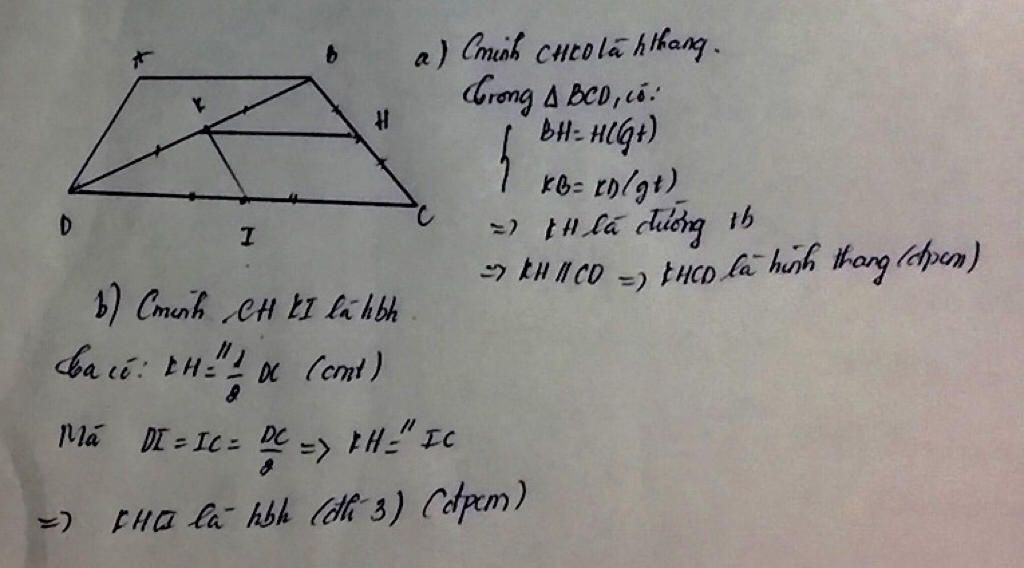 A
B
K
H
D
I
C
a) Cminh CHKD là hthang.
Trong Δ BCD, có:
BH = HC (gt)
KB = KD (gt)
=> KH là đường tb
=> KH // CD => KHCD là hình thang (đpcm)
b) Cminh CHKI là hbh
Ta có: KH =" 1/2 DC (cmt)
Mà DI = IC = DC/2 => KH =" IC
=> KHCI là hbh (dh 3) (đpcm)